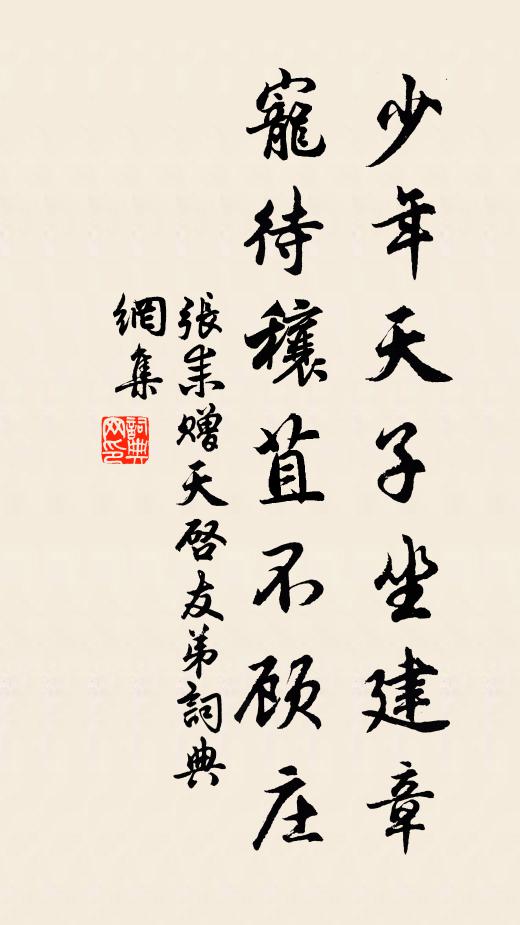 少年天子坐建章
寵待穰苴不顾庄
張耒赠天啓友弟詞典
網集
詞典
网印